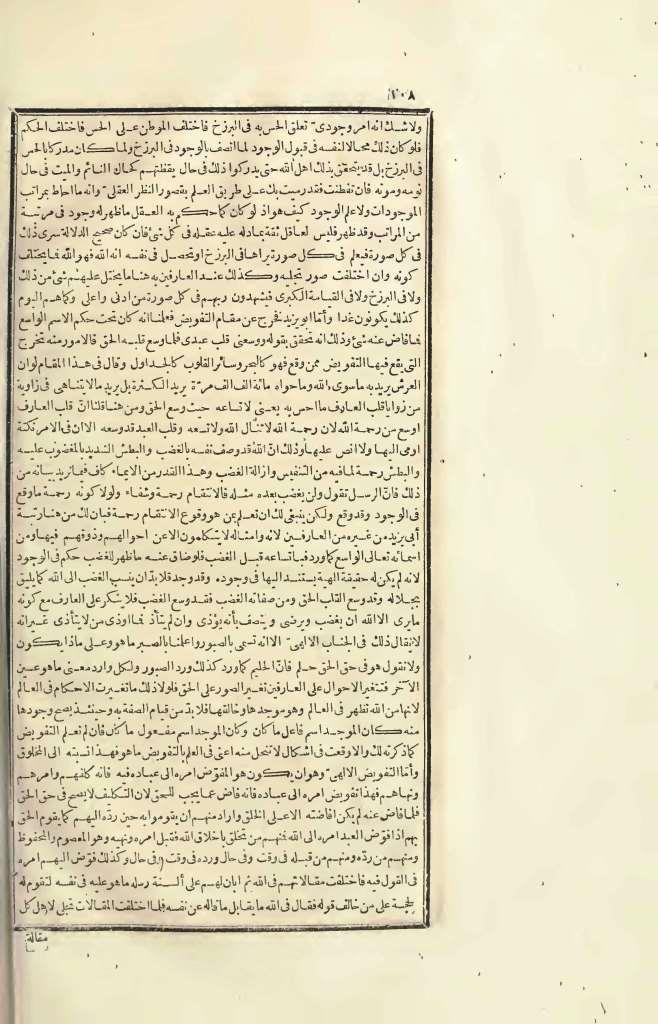 ٢٠٨
ولا شك انه امر وجودى تعلق الحس به فى البرزخ فاختلف الموطن على الحس فاختلف الحكم
فلو كان ذلك محالا لنفسه فى قبول الوجود لما اتصف بالوجود فى البرزخ ولما كان مدركا بالحس
فى البرزخ بل قد يتحقق بذلك اهل الله حتى يدركوا ذلك فى حال يقظتهم كحال النائم والميت فى حال
نومه وموته فان تفطنت فقد رميت بك على طريق العلم بقصور النظر العقلى وانه ما احاط بمراتب
الموجودات ولا علم الوجود كيف هو اذ لو كان كما حكم به العقل ما ظهر له وجود فى مرتبة
من المراتب وقد ظهر فليس لعاقل ثقة بما دله عليه عقله فى كل شئ فان كان صحيح الدلالة سرى ذلك
فى كل صورة فيعلم فى كل صورة يراها فى البرزخ او تحصل فى نفسه انه الله فهو الله فما يختلف
كونه وان اختلفت صور تجليه وكذلك عند العارفين به هنا ما يختل عليهم شئ من ذلك
ولا فى البرزخ ولا فى القيامة الكبرى فيشهدون ربهم فى كل صورة من ادنى واعلى وكما هم اليوم
كذلك يكونون غدا وأما ابو يزيد فخرج عن مقام التفويض فعلمنا انه كان تحت حكم الاسم الواسع
فما فاض عنه شئ وذلك انه تحقق بقوله ووسعنى قلب عبدى فلما وسع قلبه الحق فالامور منه تخرج
التى يقع فيها التفويض ممن وقع فهو كالبحر وسائر القلوب كالجداول وقال فى هذا المقام لو ان
العرش يريد به ما سوى الله وما حواه مائة الف الف مرة يريد الكثرة بل يريد ما لا يتناهى فى زاوية
من زوايا قلب العارف ما احس به يعنى لاتساعه حيث وسع الحق ومن هنا قلنا ان قلب العارف
اوسع من رحمة الله لان رحمة الله لا تنال الله ولا تسعه وقلب العبد قد وسعه الا ان فى الامر نكتة
اومى اليها ولا انص عليها وذلك ان الله قد وصف نفسه بالغضب والبطش الشديد بالمغضوب عليه
والبطش رحمة لما فيه من التنفيس وازالة الغضب وهذا القدر من الايماء كاف فيما نريد بيانه من
ذلك فان الرسل تقول ولن يغضب بعده مثله فالانتقام رحمة وشفاء ولولا كونه رحمة ما وقع
فى الوجود وقد وقع ولكن ينبغى لك ان تعلم بمن هو وقوع الانتقام رحمة فبان لك من هنا رتبة
أبى يزيد من غيره من العارفين لانه وامثاله لا يتكلمون الا عن احوالهم وذوقهم فيها ومن
اسمائه تعالى الواسع كما ورد فباتساعه قبل الغضب فلو ضاق عنه ما ظهر للغضب حكم فى الوجود
لانه لم يكن له حقيقة الهية يستند اليها فى وجوده وقد وجد فلا بد ان ينسب الغضب الى الله كما يليق
بجلاله وقد وسع القلب الحق ومن صفاته الغضب فقد وسع الغضب فلا ينكر على العارف مع كونه
ما يرى الا الله ان يغضب ويرضى ويتصف بأنه يؤذى وان لم يتأذ فما اوذى من لا يتأذى غير انه
لا يقال ذلك فى الجناب الالهى الا انه تسمى بالصبور واعلمنا بالصبر ما هو وعلى ماذا يكون
ولا نقول هو فى حق الحق حلم فان الحليم كما ورد كذلك ورد الصبور ولكل وارد معنى ما هو عين
الآخر فتتغير الاحوال على العارفين تغير الصور على الحق فلولا ذلك ما تغيرت الاحكام فى العالم
لانها من الله تظهر فى العالم وهو موجدها وخالقها فلا بد من قيام الصفة به وحينئذ يصح وجودها
منه كان الموجد اسم فاعل ما كان وكان الموجد اسم مفعول ما كان فان لم تعلم التفويض
كما ذكرته لك والا وقعت فى اشكال لا تنحل منه اعنى فى العلم بالتفويض ما هو فهذا نسبته الى المخلوق
وأما التفويض الالهى وهو ان يكون هو المفوض امره الى عباده فيه فانه كلفهم وامرهم
ونهاهم فهذا تفويض امره الى عباده فانه فاض عما يجب للحق لان التكليف لا يصح فى حق الحق
فلما فاض عنه لم يكن افاضته الا على الخلق واراد منهم ان يقوموا به حين رده اليهم كما يقوم الحق
بهم اذا فوض العبد امره الى الله فمنهم من تخلق باخلاق الله فقبل امره ونهيه وهو المعصوم والمحفوظ
ومنهم من رده ومنهم من قبله فى وقت وفى حال ورده فى وقت وفى حال وكذلك فوض اليهم امره
فى القول فيه فاختلفت مقالاتهم فى الله ثم ابان لهم على ألسنة رسله ما هو عليه فى نفسه لتقوم له
الحجة على من خالف قوله فقال فى الله ما يقابل ما قاله عن نفسه فلما اختلفت المقالات تجلى لاهل كل
مقالة